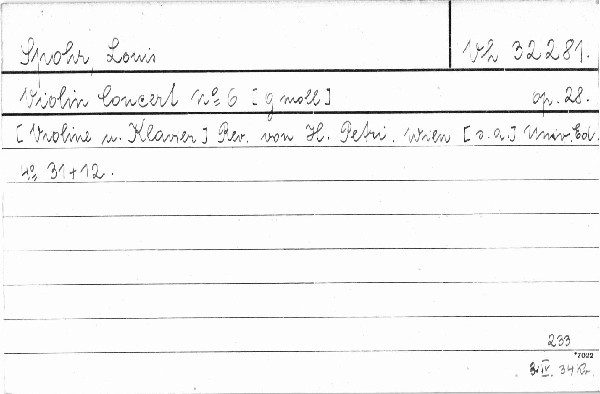 Spohr, Louis Vh 32281.
Violin Concert No 6 [g moll] op. 28.
[Violine u. Klavier] Rev. von H. Petri. Wien [s. a.] Univ. Ed.
4o 31+12.
233
*7022
3. IV. 34